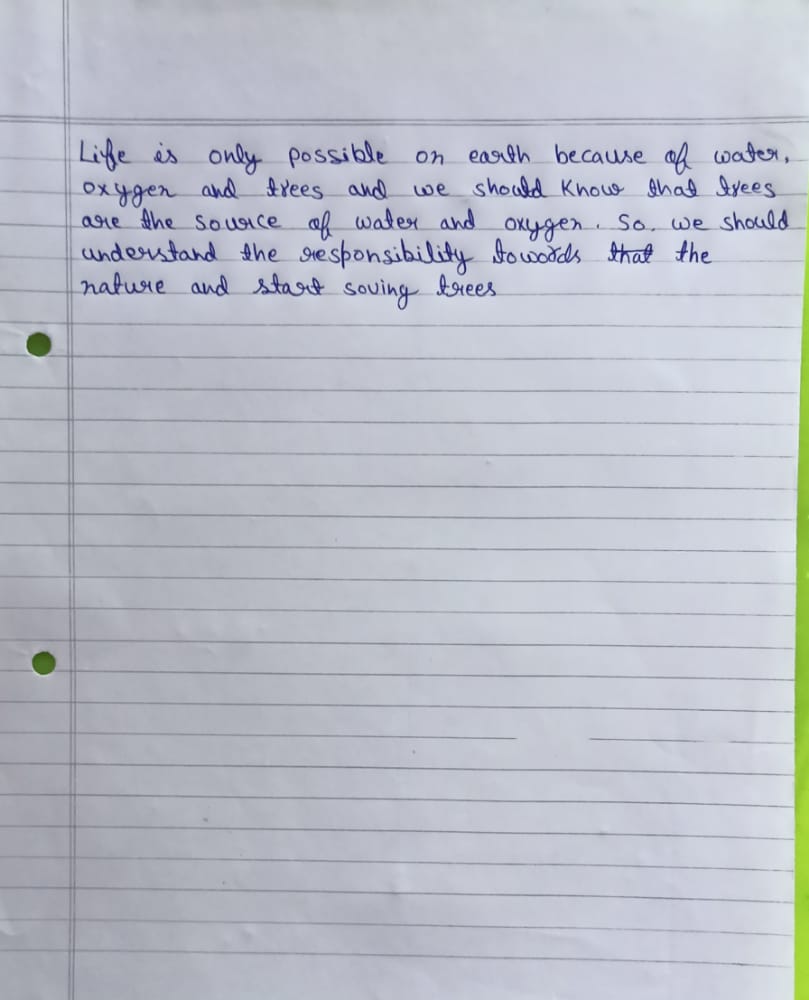 Life is only possible on earth because of water,
oxygen and trees and we should know that trees
are the source of water and oxygen. So, we should
understand the responsibility towords that the
nature and start soving trees